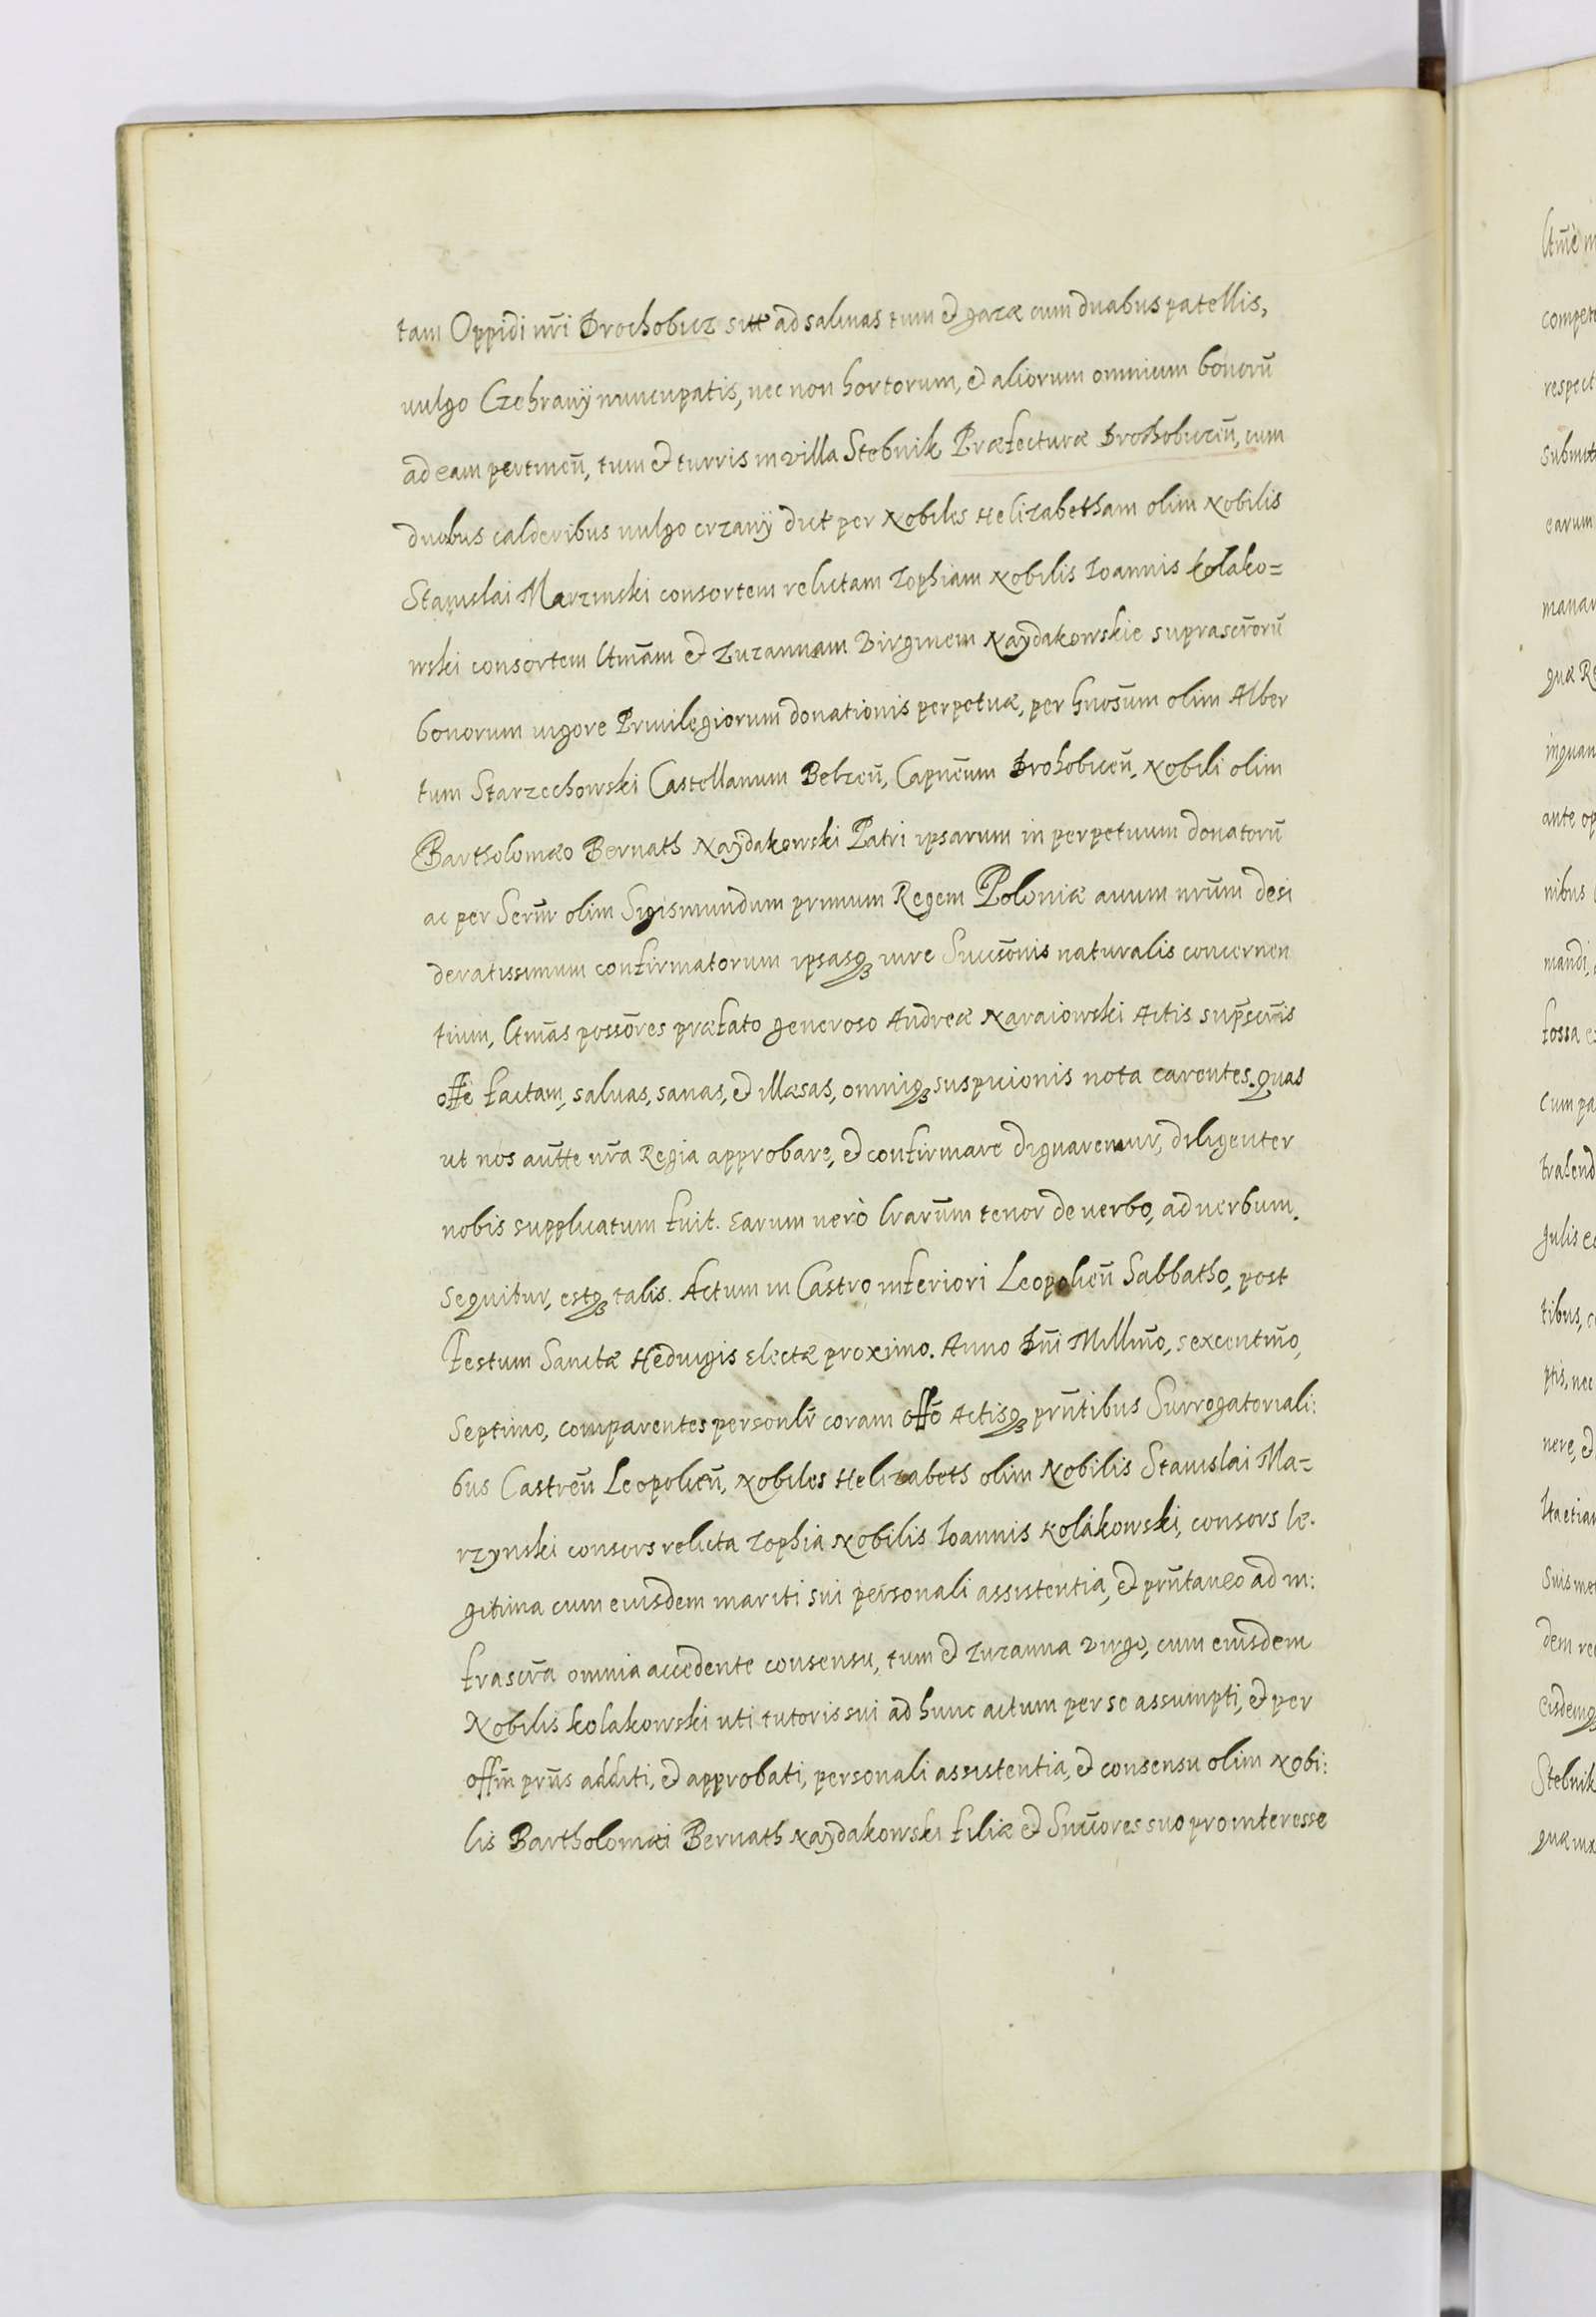 tam Oppidi nr̄i Drochobicz sitæ ad salinas tum et gazæ cum duabus patellis,
vulgo Czehranÿ nuncupatis, nec non hortorum, et aliorum omnium bonorū
ad eam pertineñ, tum et turris in villa Stebnik Præfecturæ Drohobiceñ, cum
duobus calderibus vulgo crzanÿ dict per Nobiles Helizabetham olim Nobilis
Stanislai Marzinski consortem relictam Zophiam Nobilis Ioannis Kolako=
wski consortem ltm̄am et Zuzannam Virginem Naydakowskie suprascr̄orū
bonorum vigore Priuilegiorum donationis perpetuæ, per Gnosūm olim Alber
tum Starzechowski Castellanum Belzeñ, Capnēum Drohobiceñ, Nobili olim
Bartholomæo Bernath Naydakowski Patri ipsarum in perpetuum donatorū
ac per Serm̄ olim Sigismundum primum Regem Poloniæ auum nrūm desi
deratissimum confirmatorum ipsasqʒ iure Succōnis naturalis concernen
tium, ltm̄as possōres præfato generoso Andreæ Naraiowski Actis supscr̄is
offe factam, saluas, sanas, et illæsas, omniqʒ suspicionis nota carentes. Quas
ut nos autt̄e nr̄a Regia approbare, et confirmare dignaremur, diligenter
nobis supplicatum fuit. Earum verò lrarūm tenor de verbo, ad verbum.
sequitur, estqʒ talis. Actum in Castro inferiori Leopolieñ Sabbatho, post
Festum Sanctæ Heduigis electæ proximo. Anno Dn̄i Millm̄o, sexcentm̄o,
septimo, comparentes personlr̄ coram offō Actisqʒ prn̄tibus Surrogatoriali:
bus Castreñ Leopolieñ, Nobiles Helizabeth olim Nobilis Stanislai Ma=
rzynski consors relicta Zophia Nobilis Ioannis Kolakowski, consors le.
gitima cum eiusdem mariti sui personali assistentia, et prn̄taneo ad in:
frascr̄a omnia accedente consensu, tum et Zuzanna Virgo, cum eiusdem
Nobilis Kolakowski uti tutoris sui ad hunc actum per se assumpti, et per
offm̄ prn̄s additi, et approbati, personali assistentia, et consensu olim Nobi:
lis Bartholomæi Bernath Naydakowski filiæ et Succōres suo pro interesse